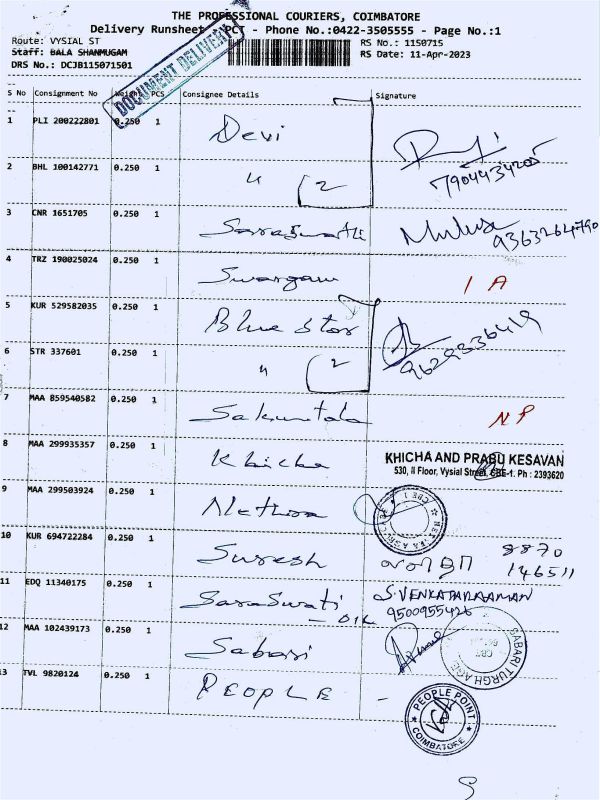 THE PROFESSIONAL COURIERS, COIMBATORE
Delivery Runsheet - PCT - Phone No.:0422-3505555 - Page No.:1
Route: VYSIAL ST
RS No.: 1150715
Staff: BALA SHANMUGAM
RS Date: 11-Apr-2023
DRS No.: DCJB115071501
DOCUMENT DELIVERY
S No Consignment No Weight PCS Consignee Details Signature
1 PLI 200222801 0.250 1 Devi
7904434205
2 BHL 100142771 0.250 1 " 2
3 CNR 1651705 0.250 1 Saraswathi
9363264790
4 TRZ 190025024 0.250 1 Swargam 1 A
5 KUR 529582035 0.250 1 Blue Star
9629336419
6 STR 337601 0.250 1 " 2
7 MAA 859540582 0.250 1 Sakuntala NP
8 MAA 299935357 0.250 1 Khicha KHICHA AND PRABU KESAVAN
530, II Floor, Vysial Street, CBE-1. Ph : 2393620
9 MAA 299503924 0.250 1 Nethra
CBE 1
10 KUR 694722284 0.250 1 Suresh 8870
146511
11 EDQ 11340175 0.250 1 Saraswati S. VENKATARAAMAN
9500955426
12 MAA 102439173 0.250 1 Sabari
13 TVL 9820124 0.250 1 PEOPLE -
PEOPLE POINT
COIMBATORE